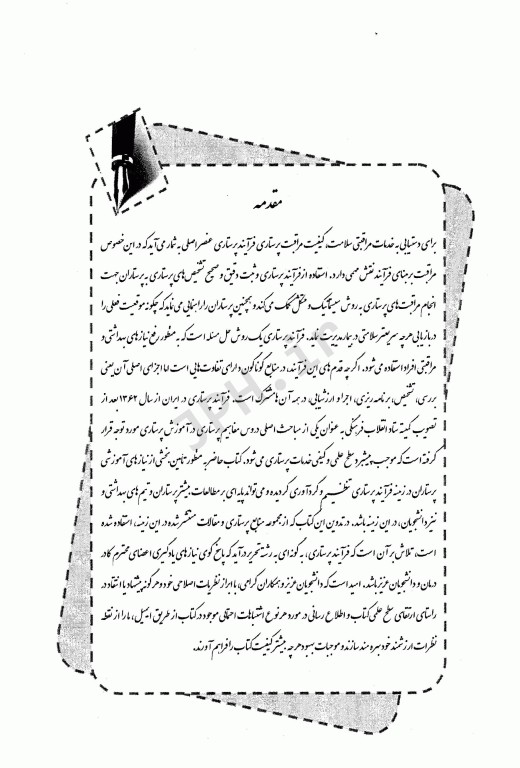 مقدمه
برای دستیابی به خدمات مراقبتی سلامت، کیفیت مراقبت پرستاری فرآیند پرستاری عنصر اصلی به شمار می آید که در این خصوص
مراقبت بر مبنای فرآیند نقش مهمی دارد. استفاده از فرآیند پرستاری و ثبت دقیق و صحیح تشخیص های پرستاری به پرستاران جهت
انجام مراقبت های پرستاری به روش سیستماتیک و مستقل کمک می کند و همچنین پرستاران را راهنمایی می نماید که چگونه موقعیت فعلی را
در بازیابی هرچه سریعتر سلامتی در بیمار مدیریت نماید. فرآیند پرستاری یک روش حل مسئله است که به منظور رفع نیازهای بهداشتی و
مراقبتی افراد استفاده می شود. اگرچه قدم های این فرآیند، در منابع گوناگون دارای تفاوت هایی است اما اجزای اصلی آن یعنی
بررسی، تشخیص، برنامه ریزی، اجرا و ارزشیابی، در همه آن ها مشترک است. فرآیند پرستاری در ایران از سال ۱۳۶۲ بعد از
تصویب کمیته ستاد انقلاب فرهنگی به عنوان یکی از مباحث اصلی دروس مفاهیم پرستاری در آموزش پرستاری مورد توجه قرار
گرفته است که موجب پیشبرد سطح علمی و کیفی خدمات پرستاری می شود. کتاب حاضر به منظور تامین بخشی از نیازهای آموزشی
پرستاران در زمینه فرآیند پرستاری تنظیم و گردآوری گردیده و می تواند پایه ای بر مطالعات بیشتر پرستاران و تیم های بهداشتی و
نیز دانشجویان، در این زمینه باشد. در تدوین این کتاب که از مجموعه منابع پرستاری و مقالات منتشر شده در این زمینه، استفاده شده
است، تلاش بر آن است که فرآیند پرستاری، به گونه ای به رشته تحریر درآید که پاسخ گوی نیازهای یادگیری اعضای محترم کادر
درمان و دانشجویان عزیز باشد. امید است که دانشجویان عزیز و همکاران گرامی، با ابراز نظریات اصلاحی خود و هرگونه پیشنهاد یا انتقاد در
راستای ارتقای سطح علمی کتاب و اطلاع رسانی در مورد هر نوع اشتباهات احتمالی موجود در کتاب از طریق ایمیل، ما را از نقطه
نظرات ارزشمند خود بهره مند سازند و موجبات بهبود هرچه بیشتر کیفیت کتاب را فراهم آورند.
JPH.ir